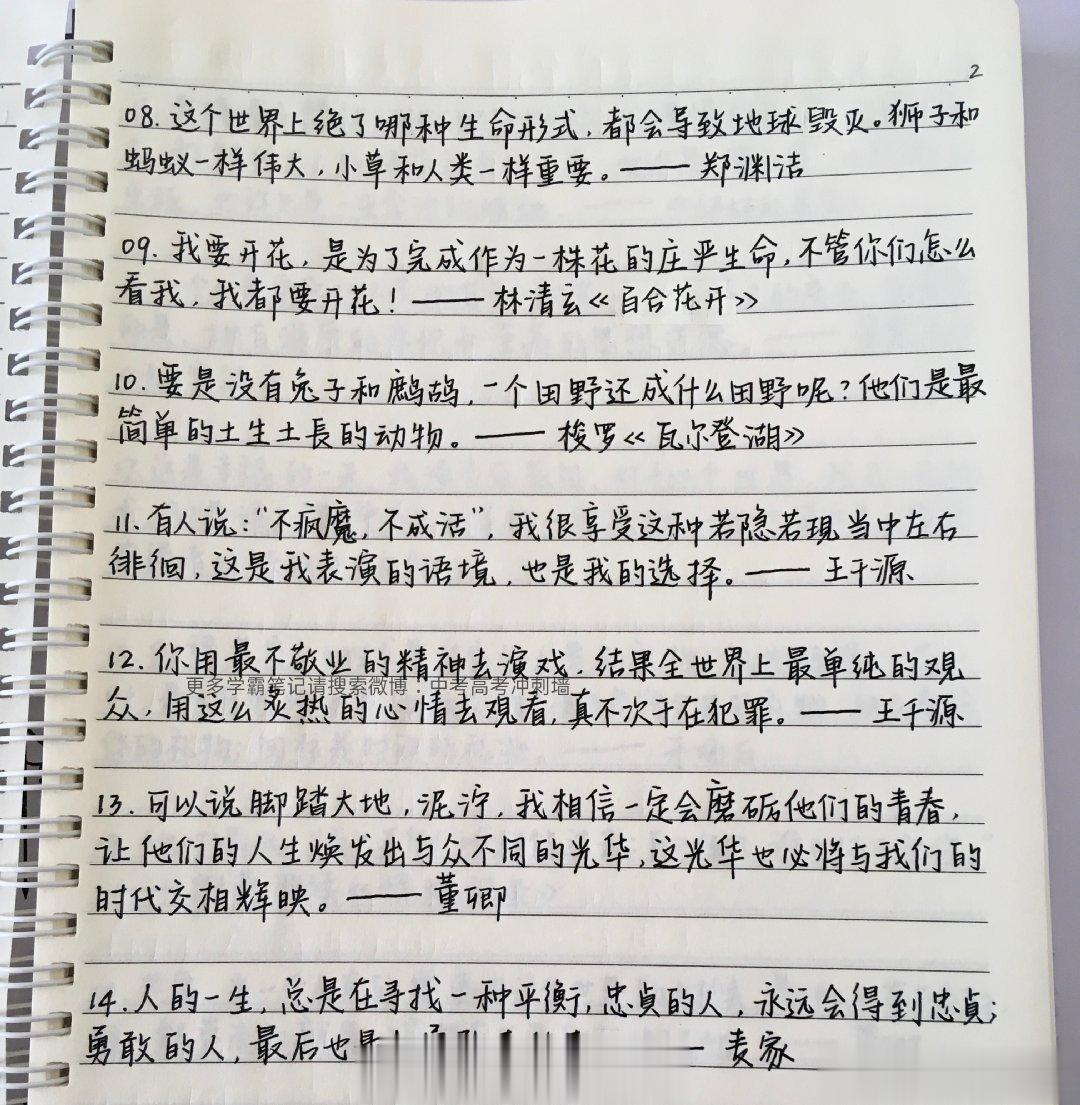 2
08. 这个世界上绝了哪种生命形式，都会导致地球毁灭。狮子和
蚂蚁一样伟大，小草和人类一样重要。—— 郑渊洁
09. 我要开花，是为了完成作为一株花的庄严生命，不管你们怎么
看我，我都要开花！—— 林清玄《百合花开》
10. 要是没有兔子和鹧鸪，一个田野还成什么田野呢？他们是最
简单的土生土長的动物。—— 梭罗《瓦尔登湖》
11. 有人说：“不疯魔，不成活”，我很享受这种若隐若現当中左右
徘徊，这是我表演的语境，也是我的选择。—— 王千源
12. 你用最不敬业的精神去演戏，结果全世界上最单纯的观
更多学霸笔记请搜索微博：中考高考冲刺墙
众，用这么炙热的心情去观看，真不次于在犯罪。—— 王千源
13. 可以说脚踏大地，泥泞，我相信一定会磨砺他们的青春，
让他们的人生焕发出与众不同的光华，这光华也必将与我们的
时代交相辉映。—— 董卿
14. 人的一生，总是在寻找一种平衡，忠貞的人，永远会得到忠貞；
勇敢的人，最后也 —— 麦家